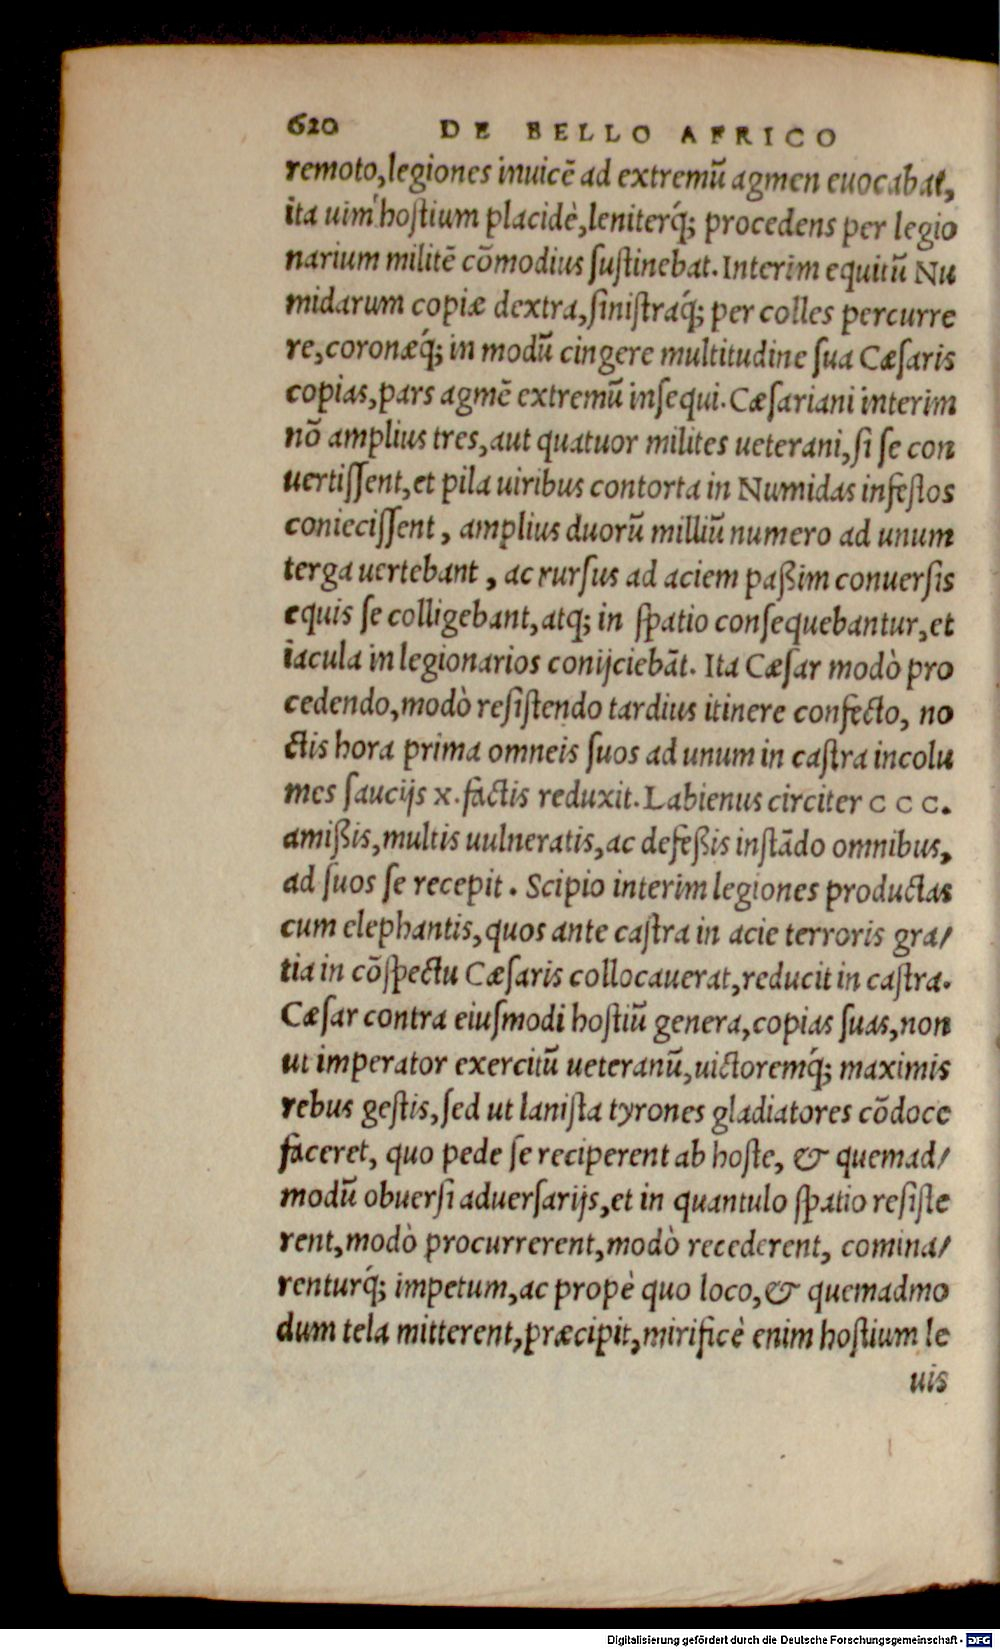 620 DE BELLO AFRICO
remoto,legiones inuicē ad extremū agmen euocabat,
ita uim hoſtium placidè,leniterq́; procedens per legio
narium militē cōmodius ſuſtinebat. Interim equitū Nu
midarum copiæ dextra,ſiniſtraq́; per colles percurre
re,coronæq́; in modū cingere multitudine ſua Cæſaris
copias,pars agmē extremū inſequi. Cæſariani interim
nō amplius tres,aut quatuor milites ueterani,ſi ſe con
uertiſſent,et pila uiribus contorta in Numidas infeſtos
conieciſſent, amplius duorū milliū numero ad unum
terga uertebant, ac rurſus ad aciem paßim conuerſis
equis ſe colligebant,atq; in ſpatio conſequebantur,et
iacula in legionarios conijciebāt. Ita Cæſar modò pro
cedendo,modò reſiſtendo tardius itinere confecto, no
ctis hora prima omneis ſuos ad unum in caſtra incolu
mes ſaucijs x. factis reduxit. Labienus circiter CCC.
amißis,multis uulneratis,ac defeßis inſtādo omnibus,
ad ſuos ſe recepit. Scipio interim legiones productas
cum elephantis,quos ante caſtra in acie terroris gra/
tia in cōſpectu Cæſaris collocauerat,reducit in caſtra.
Cæſar contra eiuſmodi hoſtiū genera,copias ſuas,non
ut imperator exercitū ueteranū,uictoremq́; maximis
rebus geſtis,ſed ut laniſta tyrones gladiatores cōdoce
faceret, quo pede ſe reciperent ab hoſte, & quemad/
modū obuerſi aduerſarijs,et in quantulo ſpatio reſiſte
rent,modò procurrerent,modò recederent, comina/
renturq́; impetum,ac propè quo loco,& quemadmo
dum tela mitterent,præcipit,mirificè enim hoſtium le
uis
Digitalisierung gefördert durch die Deutsche Forschungsgemeinschaft - DFG